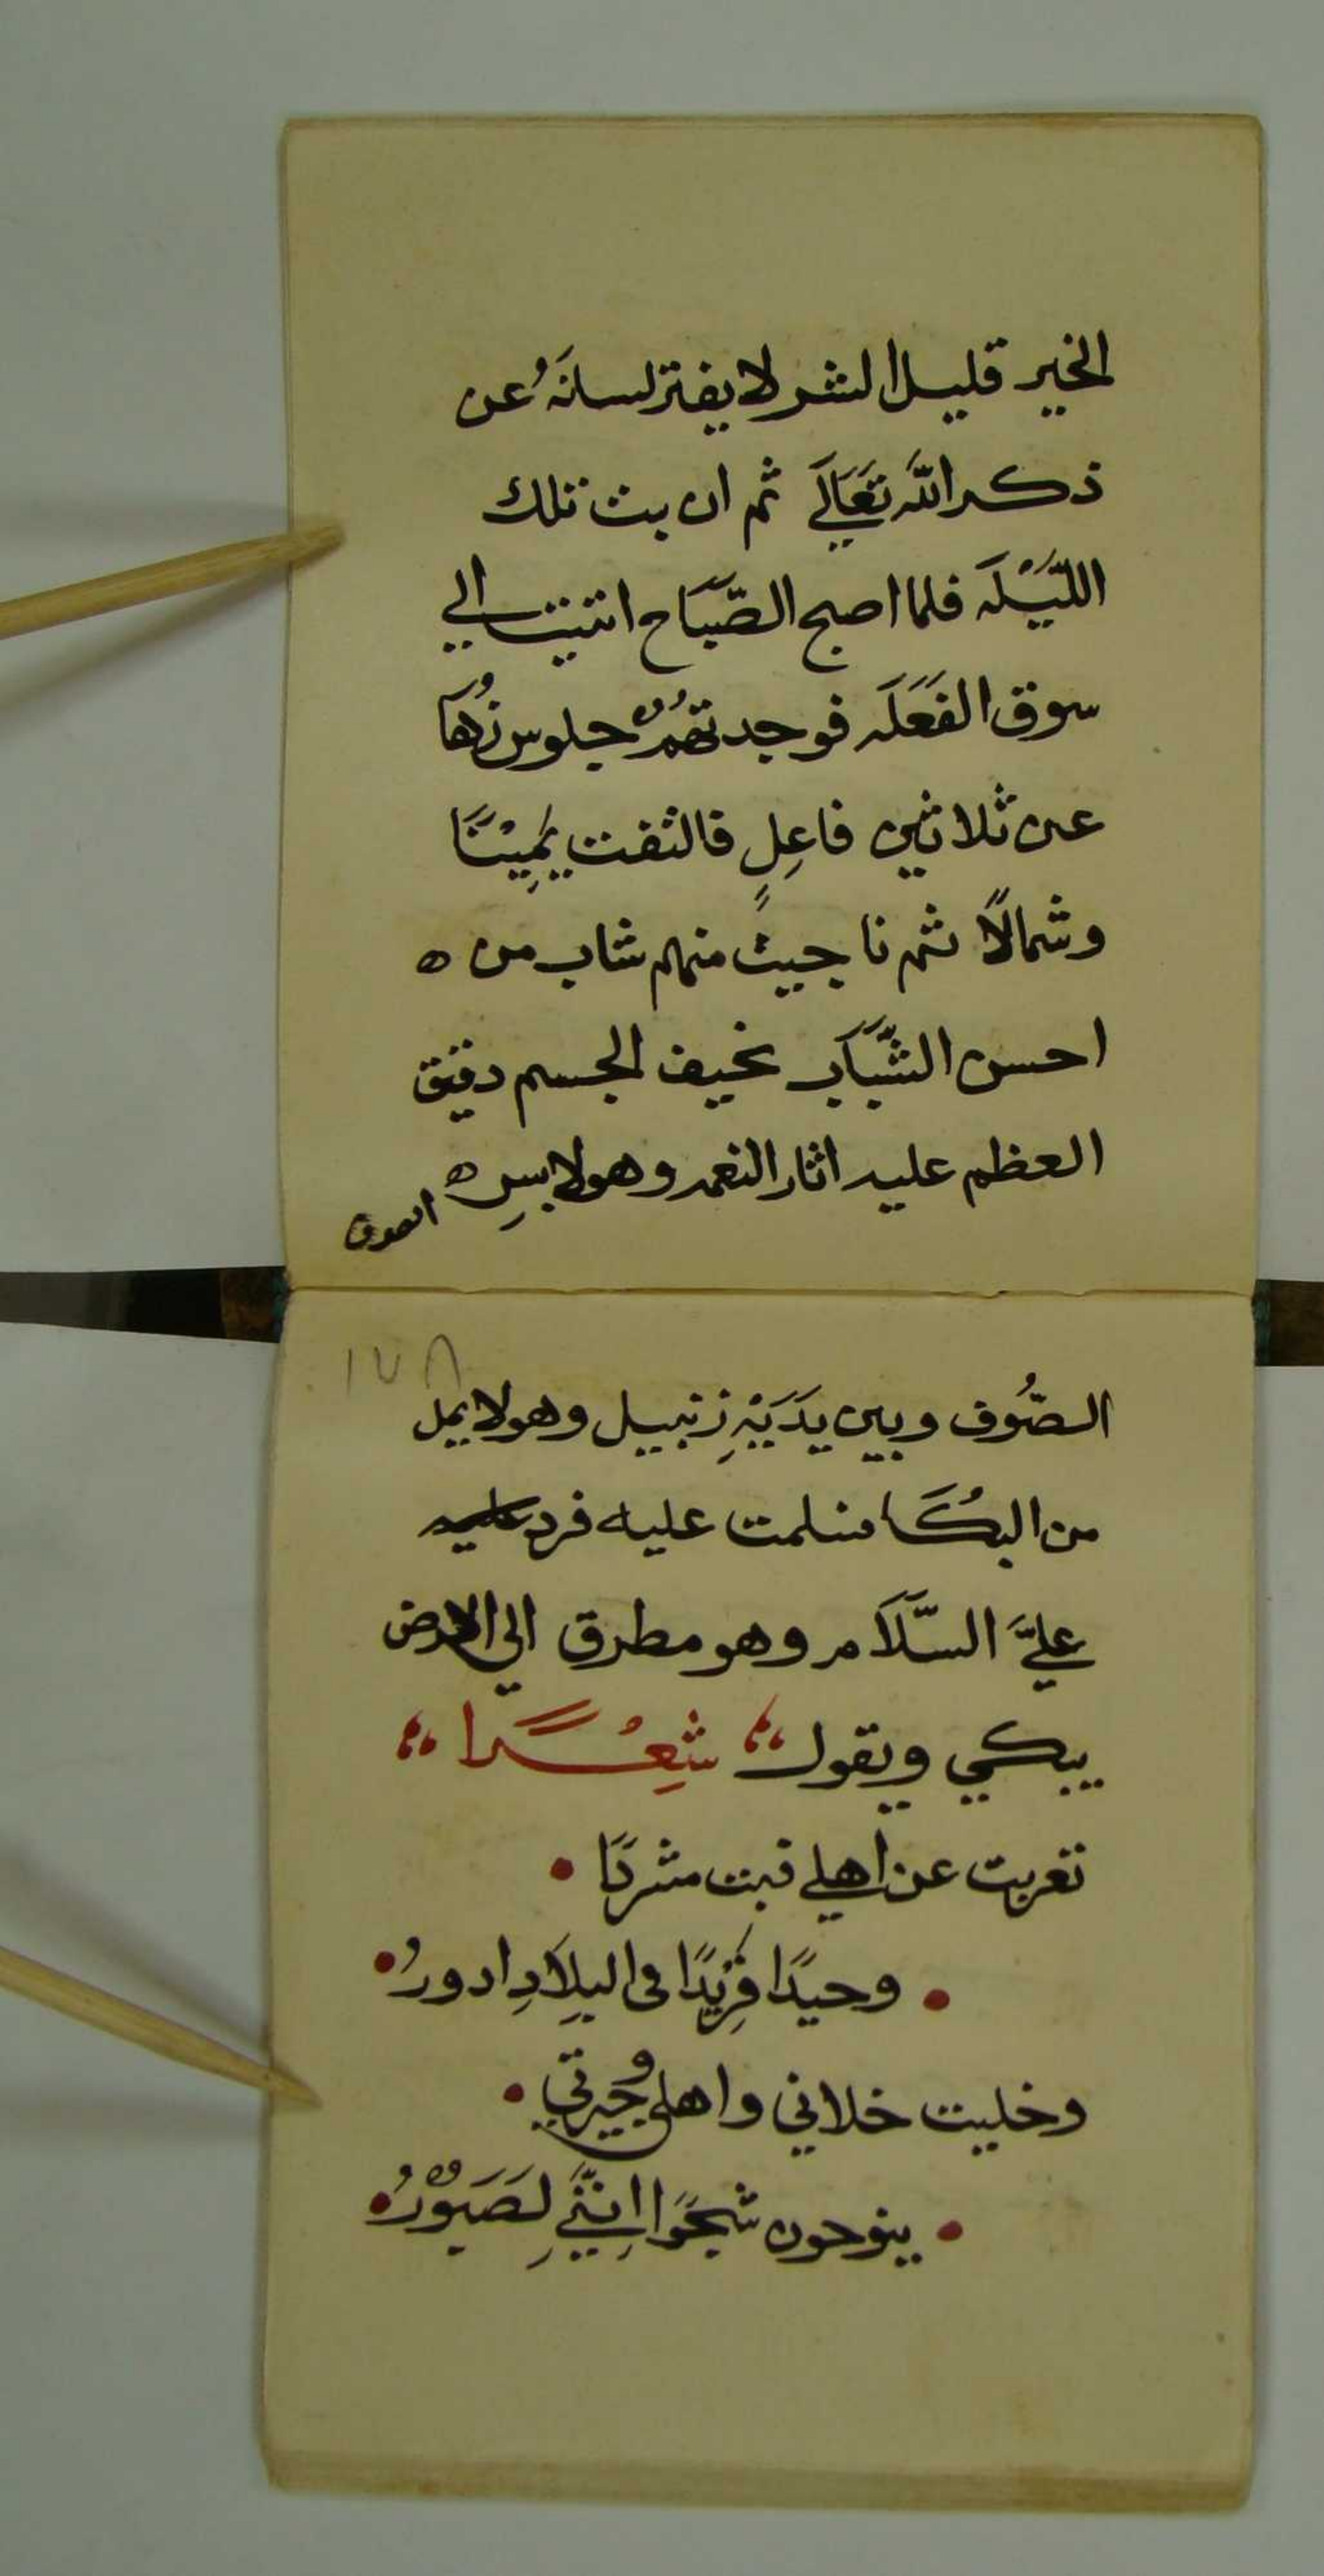 الخير قليل الشر لا يفتر لسانَهُ عن
ذكر اللّه تعَالَي ثم ان بت تلك
اللّيْلَه فلما اصبح الصّبَاح اتيت الي
سوق الفَعَلَه فوجدتهُمْ جلوس زُهَا
عن ثلاثين فاعِلٍ فالتفت يَمِيْنًا
وشمالًا ثم ناجيت منهم شاب من ه
احسن الشَّبَاب نحيف الجسم دقيق
العظم عليه اثار النعمه وهو لابسِ ه
الصوف
١٧٨
الصُّوف وبين يدَيْهِ زنبيل وهو لا يمل
من البُكَا فسلمت عليه فرد عليه
عليَّ السَّلَام وهو مطرق الي الارض
يبكي ويقول شِعْرًا
تغربت عن اهلي فبت مشردًا
وحيدًا فَرِيْدًا في البِلَادِ ادورُ
وخليت خلاني واهلي وجيرتي
ينوحون شَجْوًا اِنَّنِي لصَبَوْرُ